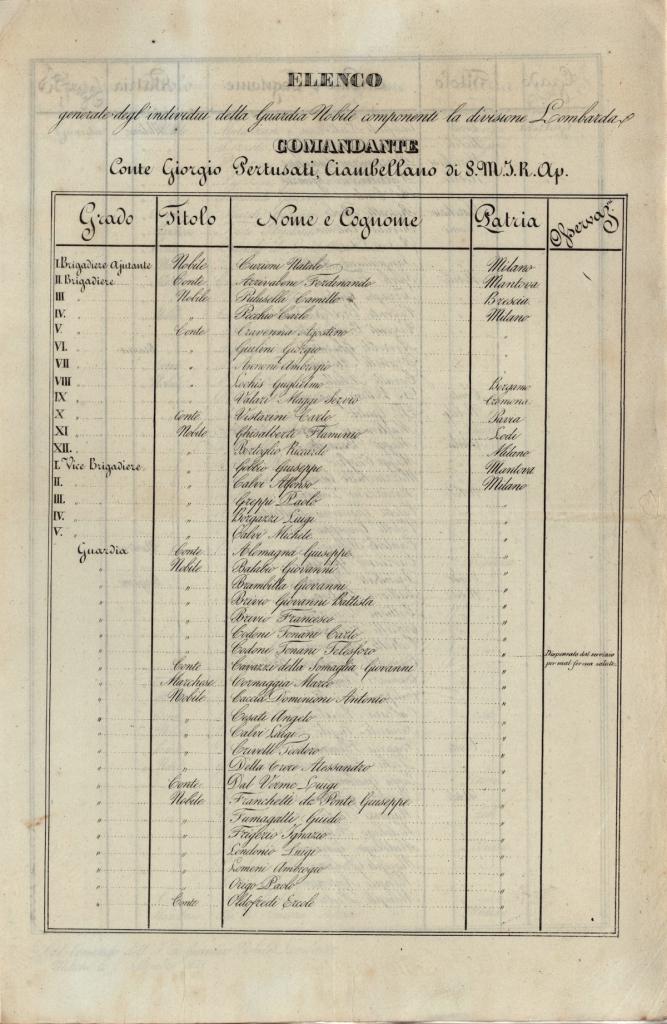 ELENCO
generale degl'individui della Guardia Nobile componenti la divisione Lombarda
COMANDANTE
Conte Giorgio Pertusati, Ciambellano di S.M.I.R.Ap.
Grado Titolo Nome e Cognome Patria Osservaz.ni
I. Brigadiere Ajutante Nobile Curioni Natale Milano
II. Brigadiere Conte Arrivabene Ferdinando Mantova
III " Nobile Camillo Brescia
IV. " " Pecchio Carlo Milano
V. " Conte Cravenna Agostino "
VI. " " Giorgio "
VII " " Ambrogio "
VIII " " Lochis Guglielmo Bergamo
IX " " Valari Maggi Servio Cremona
X " Conte Vistarini Carlo Pavia
XI " Nobile Ghisalberti Flaminio Lodi
XII. " " Bertoglio Riccardo Milano
I. Vice Brigadiere " Gobbio Giuseppe Mantova
II. " " Calvi Alfonso Milano
III. " " Greppi Paolo "
IV. " " Borgazzi Luigi "
V. " " Calvi Michele "
Guardia Conte Alemagna Giuseppe "
" Nobile Balabio Giovanni "
" " Brambilla Giovanni "
" " Brivio Giovanni Battista "
" " Brivio Francesco "
" " Codoni Tonani Carlo "
" " Codoni Tonani Telesforo " Dispensato dal servizio per mal ferma salute.
" Conte Cavazzi della Somaglia Giovanni "
" Marchese Cornaggia Marco "
" Nobile Caccia Dominioni Antonio "
" " Cesati Angelo "
" " Calvi Luigi "
" " Crivelli Teodoro "
" " Della Croce Alessandro "
" Conte Dal Verme Luigi "
" Nobile Franchetti de Ponte Giuseppe "
" " Fumagalli Guido "
" " Frigerio Ignazio "
" " Londonio Luigi "
" " Lomeni Ambrogio "
" " Origo Paolo "
" Conte Oldofredi Ercole "